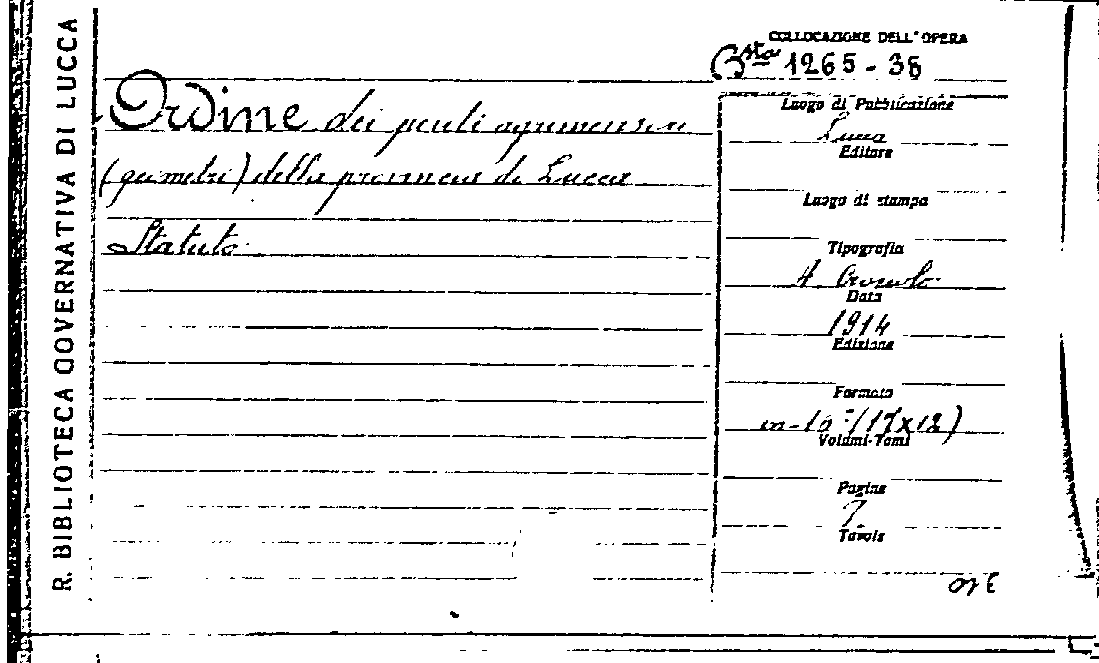 R. BIBLIOTECA GOVERNATIVA DI LUCCA
COLLOCAZIONE DELL'OPERA
Bsta 1265-38
Ordine dei periti agrimensori
(geometri) della provincia di Lucca
Statuto.
Luogo di Pubblicazione
Lucca
Editore
Luogo di stampa
Tipografia
A.
Data
1914
Edizione
Formato
in-16° (17x12)
Volumi-Tomi
Pagine
7
Tavole